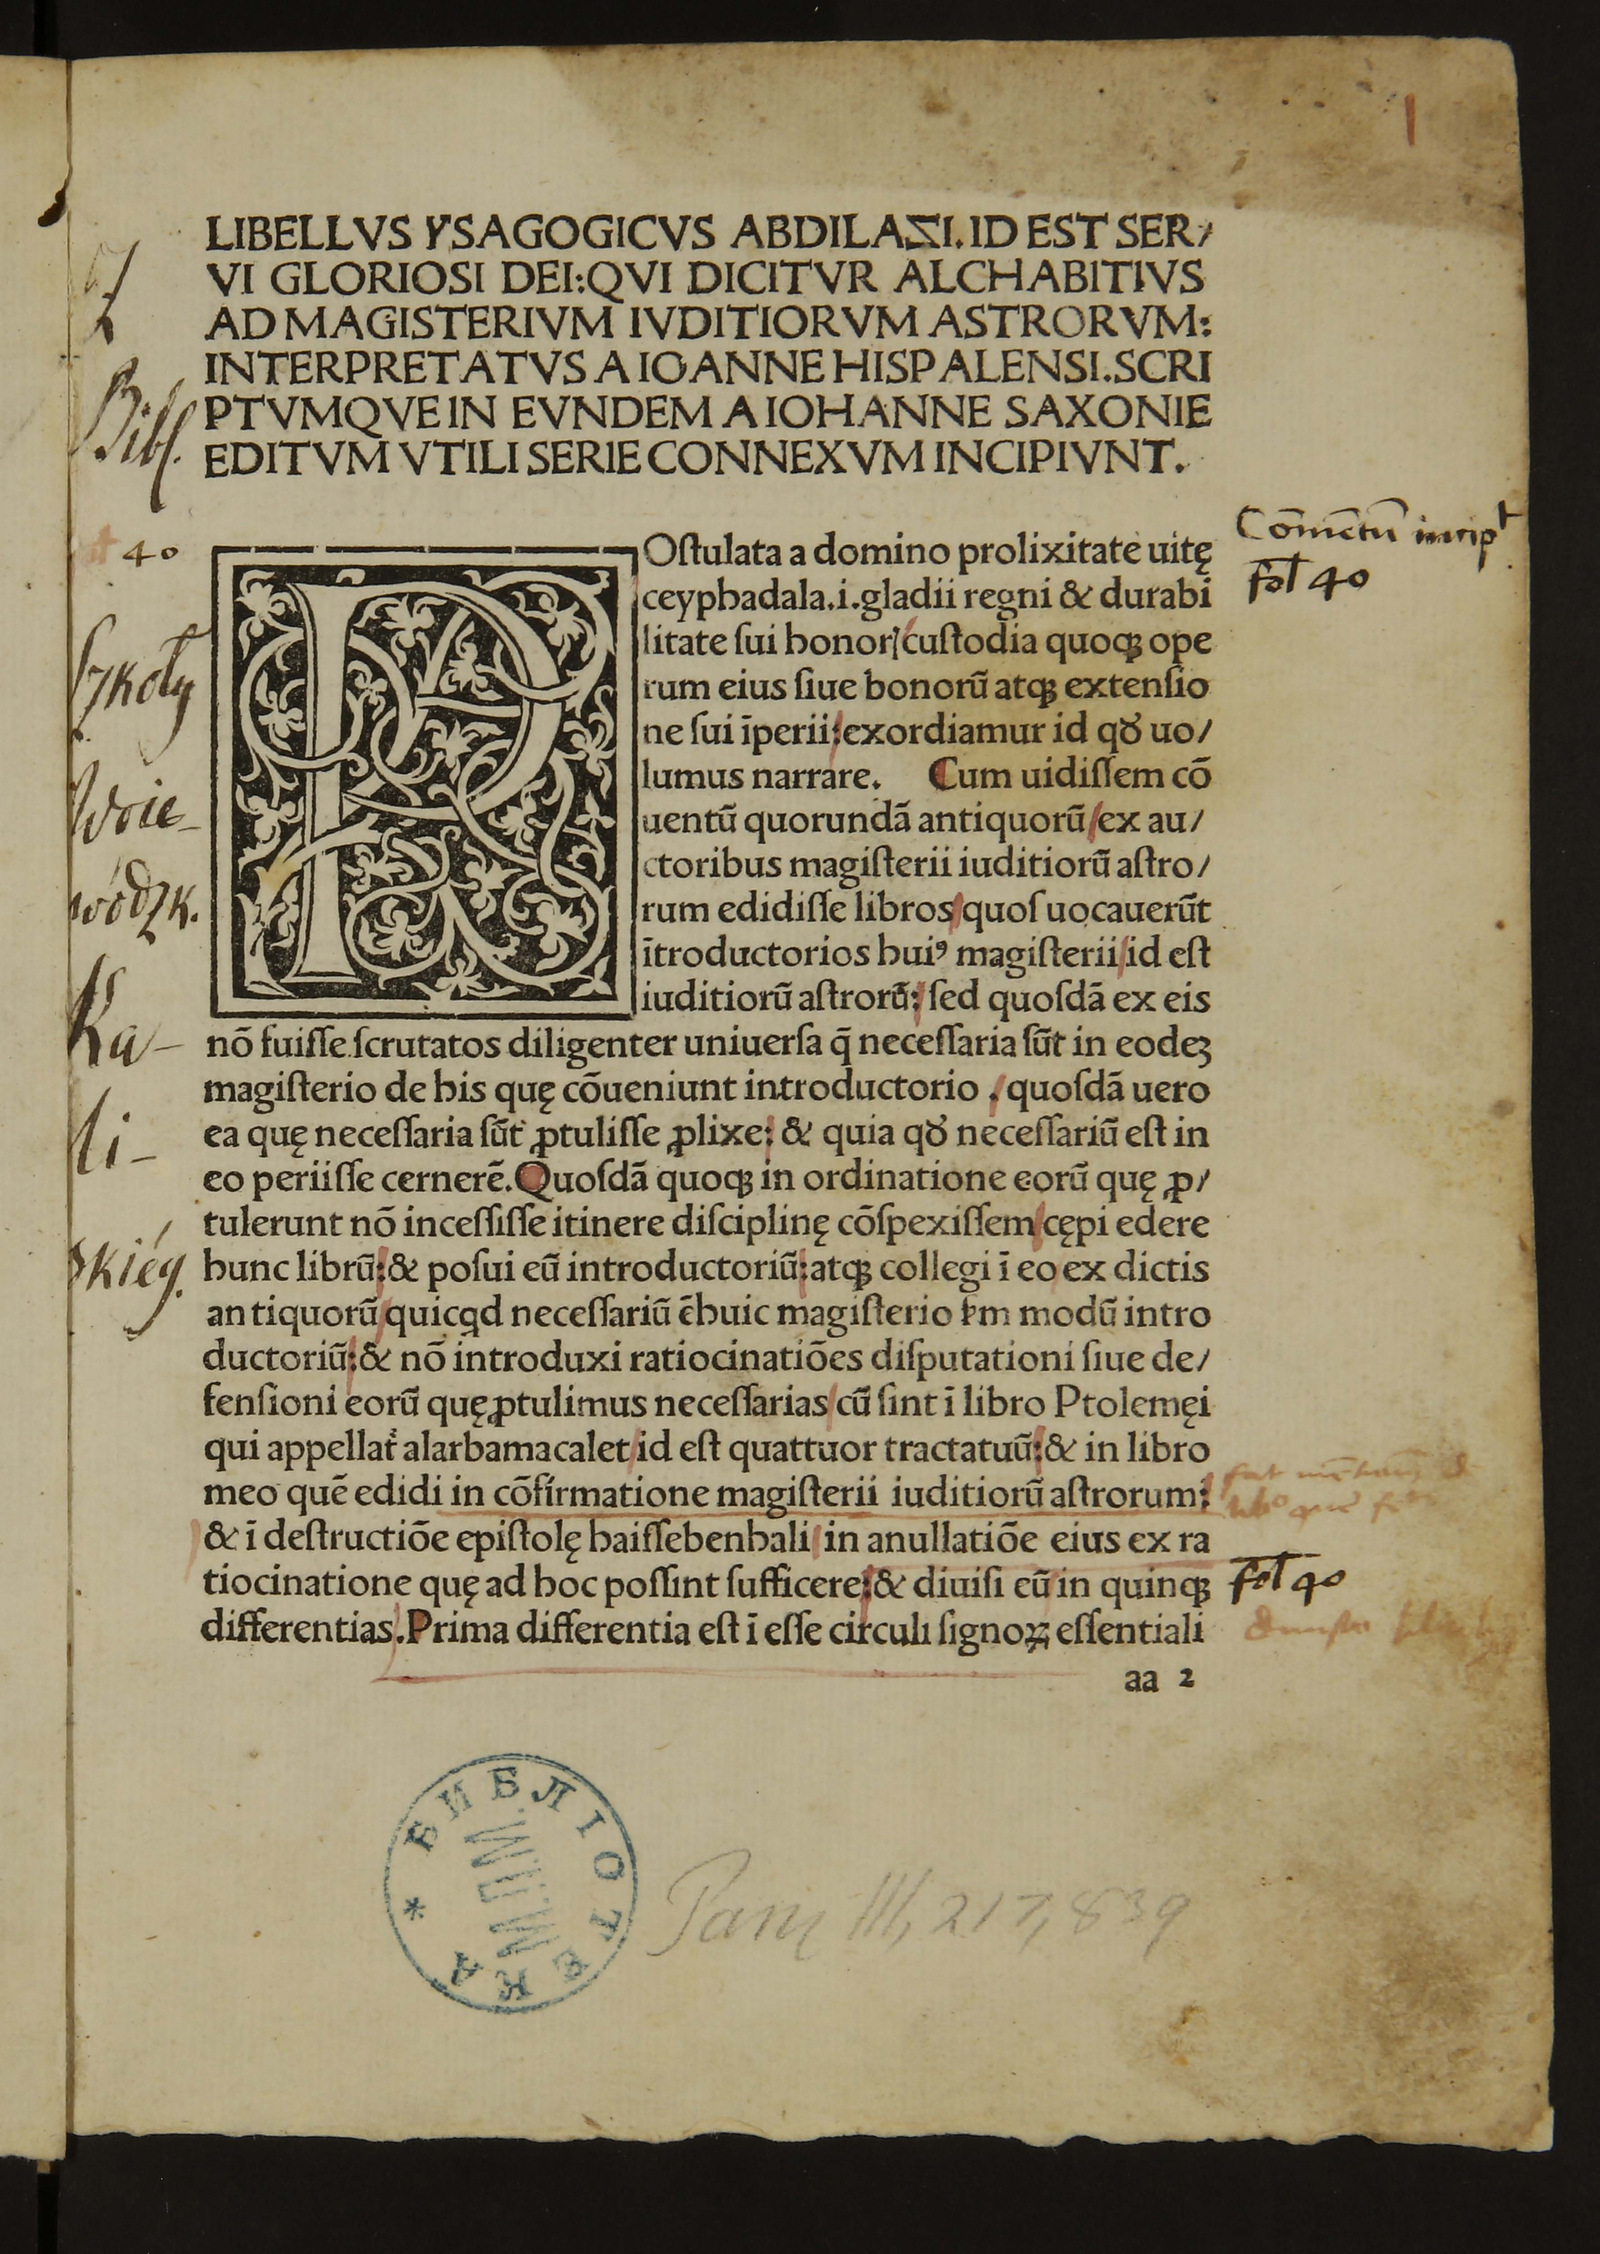 LIBELLVS YSAGOGICVS ABDILAZI. ID EST SER/
VI GLORIOSI DEI: QVI DICITVR ALCHABITIVS
AD MAGISTERIVM IVDITIORVM ASTRORVM:
INTERPRETATVS A IOANNE HISPALENSI. SCRI
PTVMQVE IN EVNDEM A IOHANNE SAXONIE
EDITVM VTILI SERIE CONNEXVM INCIPIVNT.
POſtulata a domino prolixitate uitę
ceyphadala.i.gladii regni & durabi
litate ſui honor/ cuſtodia quoqꝫ ope
rum eius ſiue bonorū atqꝫ extenſio
ne ſui īperii: exordiamur id qđ uo/
lumus narrare. Cum uidiſſem cō
uentū quorundā antiquorū/ ex au/
ctoribus magiſterii iuditiorū aſtro/
rum edidiſſe libros/ quoſ uocauerūt
ītroductorios huiꝰ magiſterii/ id eſt
iuditiorū aſtrorū: ſed quoſdā ex eis
nō fuiſſe ſcrutatos diligenter uniuerſa q̄ neceſſaria ſūt in eodeꝫ
magiſterio de his quę cōueniunt introductorio. quoſdā uero
ea quę neceſſaria ſūt ꝓtuliſſe ꝓlixe: & quia qđ neceſſariū eſt in
eo periiſſe cernerē. Quoſdā quoqꝫ in ordinatione eorū quę ꝓ/
tulerunt nō inceſſiſſe itinere diſciplinę cōſpexiſſem/ cępi edere
hunc librū: & poſui eū introductoriū: atqꝫ collegi ī eo ex dictis
antiquorū/ quicqd neceſſariū ē huic magiſterio ẜm modū intro
ductoriū: & nō introduxi ratiocinatiōes diſputationi ſiue de/
fenſioni eorū quę ꝓtulimus neceſſarias/ cū ſint ī libro Ptolemęi
qui appellat̉ alarbamacalet/ id eſt quattuor tractatuū: & in libro
meo quē edidi in cōfirmatione magiſterii iuditiorū aſtrorum:
& ī deſtructiōe epiſtolę haiſſebenhali/ in anullatiōe eius ex ra
tiocinatione quę ad hoc poſſint ſufficere: & diuiſi eū in quinqꝫ
differentias. Prima differentia eſt ī eſſe circuli ſignoꝝ eſſentiali
aa 2
Z
Bibl.
40
Szkoły
Woie-
wódzk.
Ka-
li-
skiéy.
Cōmētū incipt
fol 40
fol 40
1
БИБЛІОТЕКА *
Panz III, 217, 839